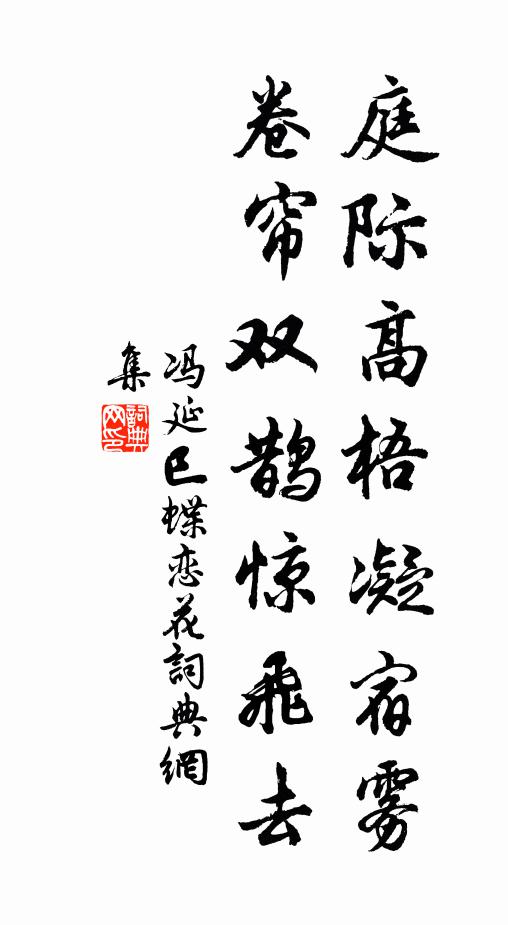 庭际高梧凝宿雾
卷帘双鹊惊飞去
冯延巳蝶恋花詞典網
集
詞典网印